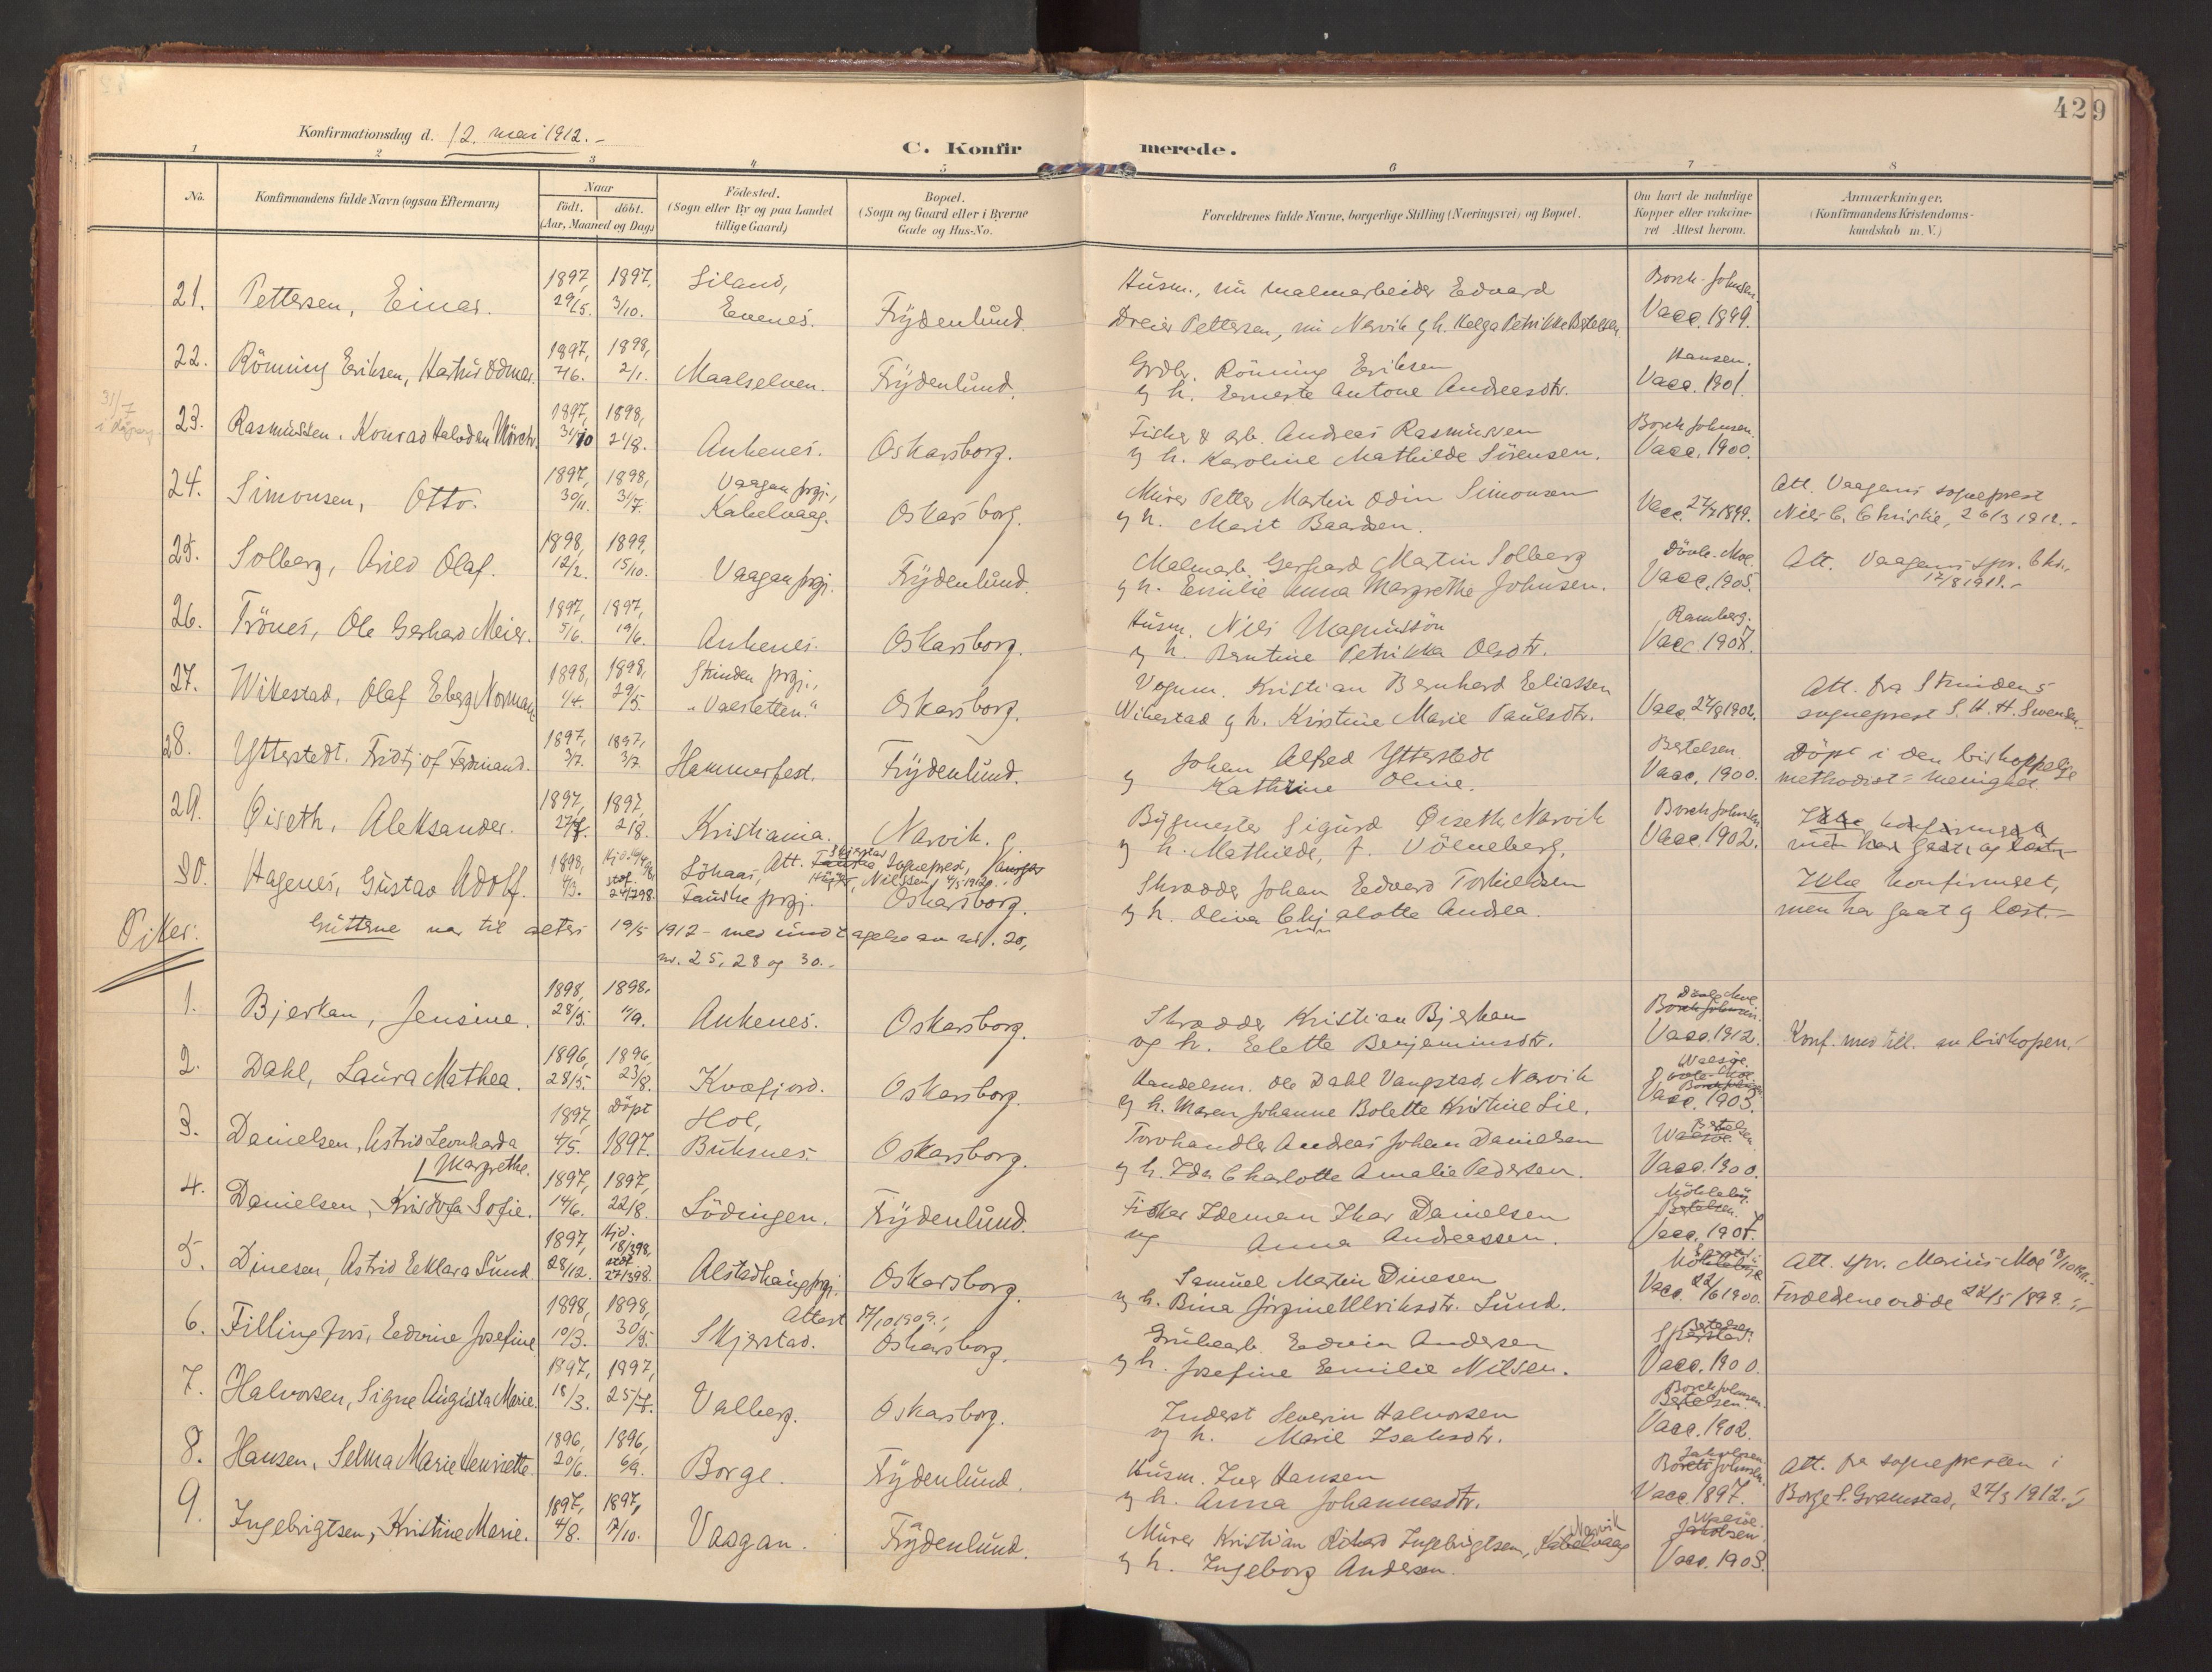 429
Konfirmationsdag d. 12. mai 1912.-
C. Konfirmerede.
1 2 3 4 5 6 7 8
No.
Konfirmandens fulde Navn (ogsaa Efternavn)
Naar
født. døbt.
(Aar, Maaned og Dag)
Fødested.
(Sogn eller By og paa Landet
tillige Gaard)
Bopæl.
(Sogn og Gaard eller i Byerne
Gade og Hus-No.
Forældrenes fulde Navne, borgerlige Stilling (Næringsvei) og Bopæl.
Om havt de naturlige
Kopper eller vakcine-
ret Attest herom.
Anmærkninger.
(Konfirmandens Kristendoms-
kundskab m. V.)
21. Pettersen, Einar. 1897, 29/5. 1897, 3/10. Liland, Evenes. Frydenlund.
Husm., nu malmarbeider Edvard Borch-Johnsen.
Dreier Pettersen, nu Narvik g h. Helga Petrikke Bertelsen Vacc. 1899.
22. Rönning Eriksen, Odmar. 1897, 7/6. 1898, 2/1. Maalselven. Frydenlund.
Grdbr. Rönning Eriksen Hansen.
g h. Erneste Antone Andreasdtr. Vacc. 1901.
31/7
23. Rasmussen, Konrad Halvdan 1897, 31/10 1898, 21/8. Ankenes. Oskarsborg.
Fisker & gb. Andreas Rasmussen Borch Johnsen.
g h. Karoline Mathilde Sörensen. Vacc. 1900.
24. Simonsen, Otto. 1897, 30/11. 1898, 31/7. Vaagan prgj., Kabelvaag. Oskarsborg.
Murer Petter Martin Odin Simonsen
g h. Marit Baardsen. Vacc. 27/7 1899.
Att. Vaagans sogneprest
Niels C. Christie, 26/3 1912.-
25. Solberg, Arild Olaf. 1898, 12/2. 1899, 15/10. Vaagan prgj. Frydenlund.
Malmarb. Gerhard Martin Solberg
g h. Emilie Anna Margrethe Johnsen. Vacc. 1905.
Att. Vaagans spr. Chr.
17/8 1911.-
26. Trönes, Ole Gerhard Meier. 1897, 5/6. 1897, 19/6. Ankenes. Oskarsborg.
Husm. Nils Magnussön Ramberg.
g h. Berntine Petrikka Olsdtr. Vacc. 1907.
27. Wikestad, Olaf Eberg Norman 1898, 1/4. 1898, 29/5. Strinden prgj., „Valsletten." Oskarsborg.
Vognm. Kristian Bernhard Eliassen
Wikestad g h. Kristine Marie Paulsdtr. Vacc. 27/9 1902.
Att. fra Strindens
sogneprest S. H. H. Svendsen
28. Ytterstedt. Fridtjof Ferdinand. 1897, 3/7. 1897, 3/7. Hammerfest. Frydenlund.
Johan Alfred Ytterstedt Bertelsen
g Kathrine Oline. Vacc. 1900.
Döpt i den biskoppelige
methodist=menighed.
29. Öiseth, Aleksander. 1897, 27/7. 1897, 2/8. Kristiania. Narvik.
Bygmester Sigurd Öiseth Narvik Borch Johnsen
g h. Mathilde, f. Völneberg. Vacc. 1902.
Ikke konfirmert
men har gaat og læst
30. Hagenes, Gustav Adolf. 1898, 4/3. stad. 24/7 98. Löhaas, Fauske prgj. Att. Skjerstad Sogneprest, Nilssen, 4/5 1912. Oskarsborg.
Skrædder Johan Edvard Torkildsen
g h. Olina Chjarlotte Andrea.
Ikke konfirmert,
men har gaat g læst.-
Gutterne var til alters 19/5 1912 - med undtagelse av nr. 20,
nr. 25, 28 og 30.-
Piker:
1. Bjerkan, Jensine. 1898, 28/5. 1898. 11/9. Ankenes. Oskarsborg.
Skrædder Kristian Bjerkan
og h. Elette Benjaminsdtr. Vacc. 1912.
Konf. med till. av biskopen.-
2. Dahl, Laura Mathea. 1896, 28/5. 1896, 23/8. Kvæfjord. Oskarsborg.
Handelsm. Ole Dahl Vangstad, Narvik
g h. Maren Johanne Bolette Kristine Lie. Vacc. 1903.
3. Danielsen, Astrid Leonharda Margrethe. 1897, 4/5. Döpt 1897. Hol, Buksnes. Oskarsborg.
Torvhandler Andreas Johan Danielsen
g h. Ida Charlotte Amalie Pedersen. Vacc. 1900.
4. Danielsen, Sofie. 1897, 14/6. 1897, 22/8. Lödingen. Frydenlund.
Fisker Edeman Ikar Danielsen
og Anna Andreassen. Vacc. 1907.
5. Dinesen, Astrid Eeklara Lund. 1897, 28/12. Hjd. 18/3 98, stad. 27/3 98. Alstadhaug prgj. Oskarsborg.
Samuel Martin Dinesen
g h. Bina Jörgine Ulriksdtr. Lund. Vacc. 22/6 1900.
Att. spr. Marius Moe
Forældrene viede 22/5 1899.
6. Fillingfors, Edvine Josefine 1898, 10/3. 1898, 30/5. Skjerstad. Attest 17/10 1909. Oskarsborg.
Grubearb. Edvin Andersen Bertelsen
g h. Josefine Emilie Nilsen. Vacc. 1900.
7. Halvorsen, Signe Augusta Marie. 1897, 18/3. 1897, 25/7. Valberg. Oskarsborg.
Inderst Severin Halvorsen Borch Johnsen. Bertelsen.
og h. Marie Isaksdtr. Vacc. 1902.
8. Hansen, Selma Marie Henriette. 1896, 20/6. 1896, 6/9. Borge. Frydenlund.
Husm. Iver Hansen Jakobsen
g h. Anna Johannesdtr. Vacc. 1897.
Att. fra sognepresten i
Borge S. Gravmstad, 27/3 1912.
9. Ingebrigtsen, Kristine Marie. 1897, 4/8. 1897, 17/10. Vaagan. Frydenlund.
Murer Kristian Rikard Ingebrigtsen, Kabelvaag Narvik Jakobsen.
g h. Ingeborg Andersen. Vacc. 1903.